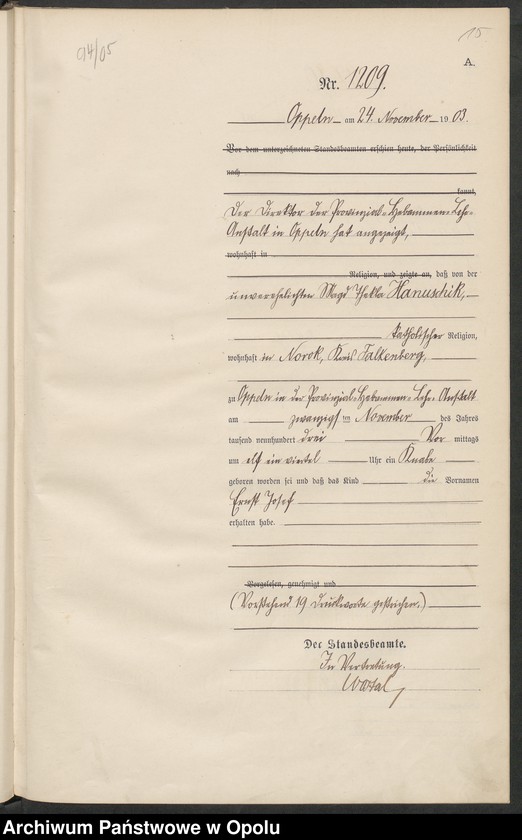 15
94/05
A.
Nr. 1209.
Oppeln am 24. November 1903.
Vor dem unterzeichneten Standesbeamten erschien heute, der Persönlichkeit
nach
kannt,
Der Direktor der Provinzial-Hebammen-Lehr-
Anstalt in Oppeln hat angezeigt,
wohnhaft in
Religion, und zeigte an, daß von der
unverehelichten Magd Thekla Hanuschik,
katholischer Religion,
wohnhaft in Norok, Kreis Falkenberg,
zu Oppeln in der Provinzial-Hebammen-Lehr-Anstalt
am zwanzigsten November des Jahres
tausend neunhundert drei Vor mittags
um elf ein viertel Uhr ein Knabe
geboren worden sei und daß das Kind die Vornamen
Ernst Josef
erhalten habe.
Vorgelesen, genehmigt und
(Vorstehend 19 Druckworte gestrichen.)
Der Standesbeamte.
In Vertretung.
Archiwum Państwowe w Opolu